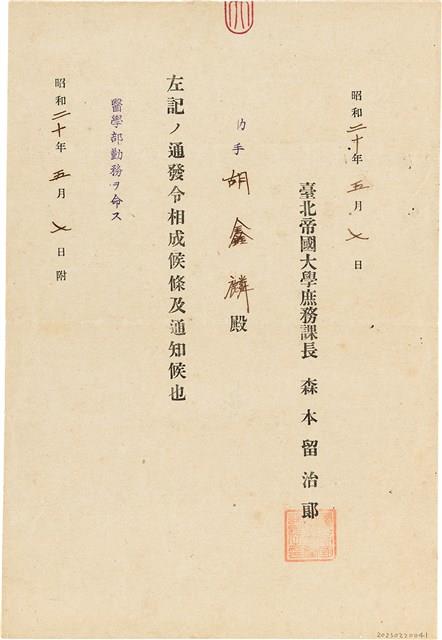 昭和二十年五月七日
臺北帝國大學庶務課長 森本留治郞
胡鑫麟殿
左記ノ通發令相成候條及通知候也
醫學部勤務ヲ命ス
昭和二十年五月七日附
20230220041